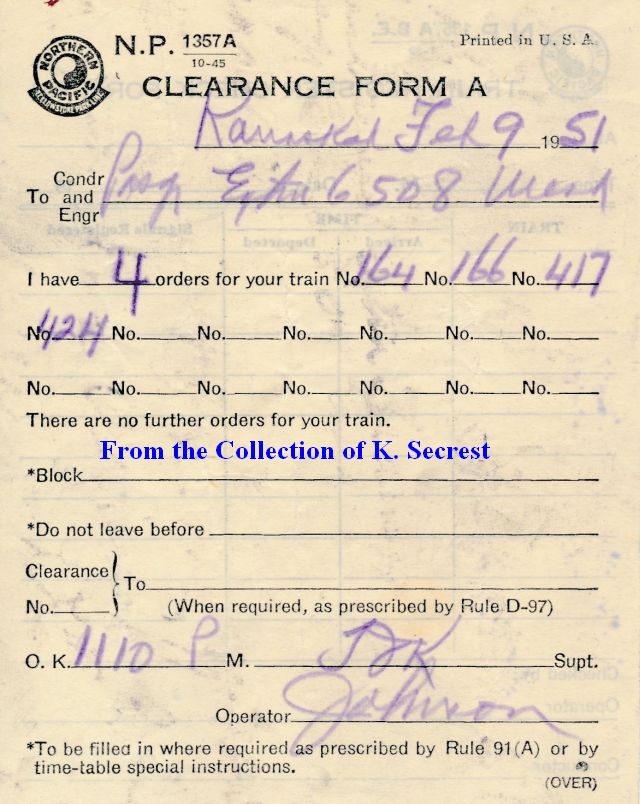 NORTHERN PACIFIC
YELLOWSTONE PARK LINE
N.P. 1357A
10-45
Printed in U. S. A.
CLEARANCE FORM A
Feb 9 1951
Condr
To and Psgr Extra 6508 West
Engr
I have 4 orders for your train No. 164 No. 166 No. 417
No. 424 No. No. No. No. No. No.
No. No. No. No. No. No. No.
There are no further orders for your train.
From the Collection of K. Secrest
*Block
*Do not leave before
Clearance
To
No. (When required, as prescribed by Rule D-97)
O. K. 1110 P M. JDK Supt.
Operator Johnson
*To be filled in where required as prescribed by Rule 91(A) or by
time-table special instructions.
(OVER)